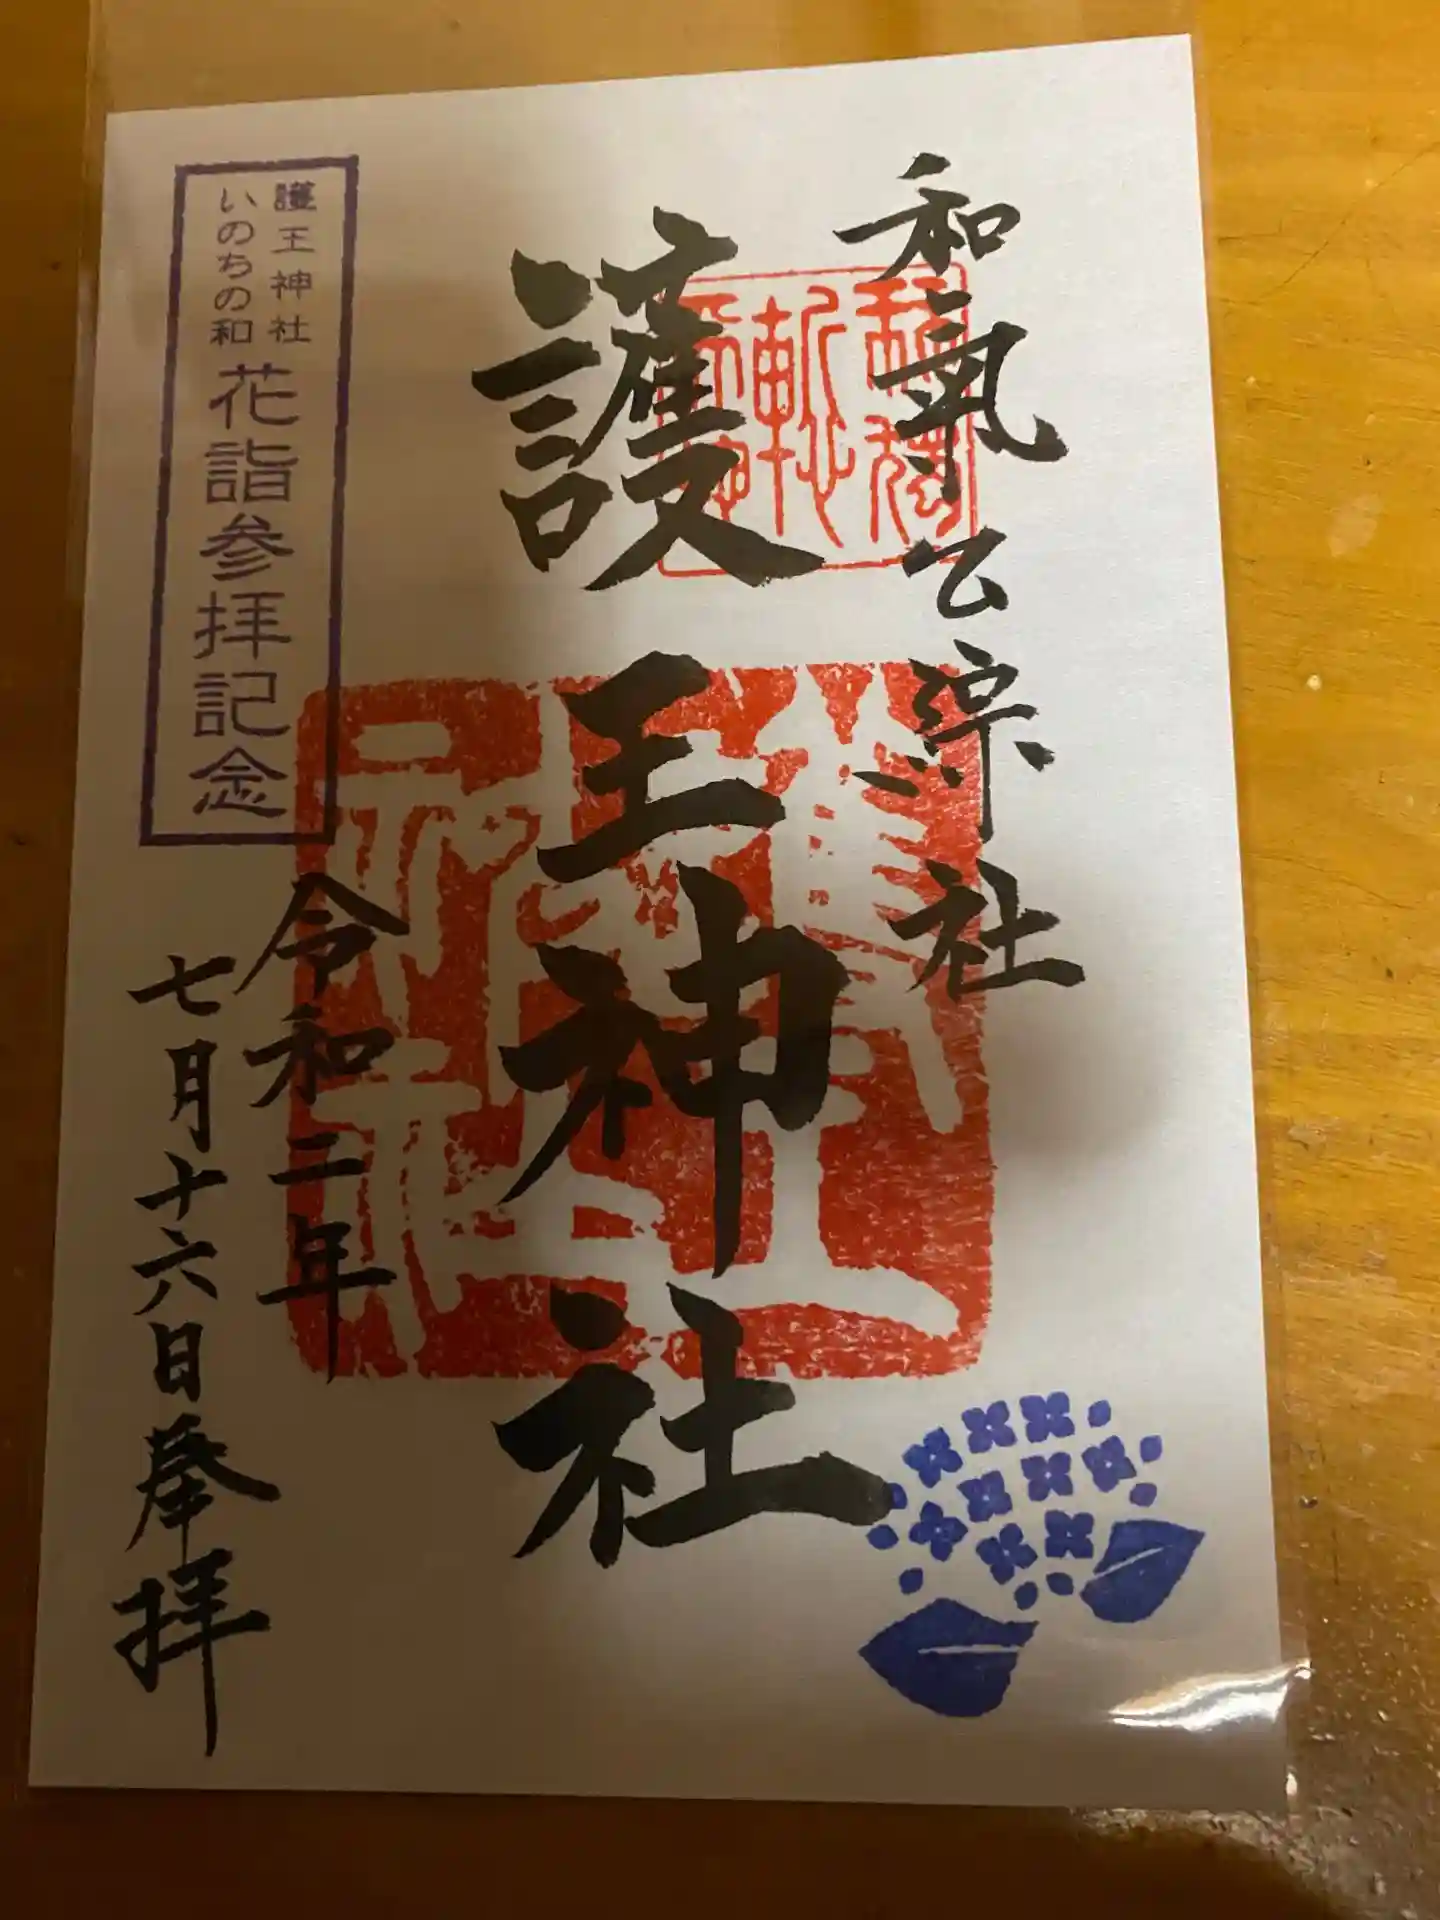 和氣公綜社
護王神社
護王神社
いのちの和
花詣参拝記念
令和二年
七月十六日奉拝
護王神社